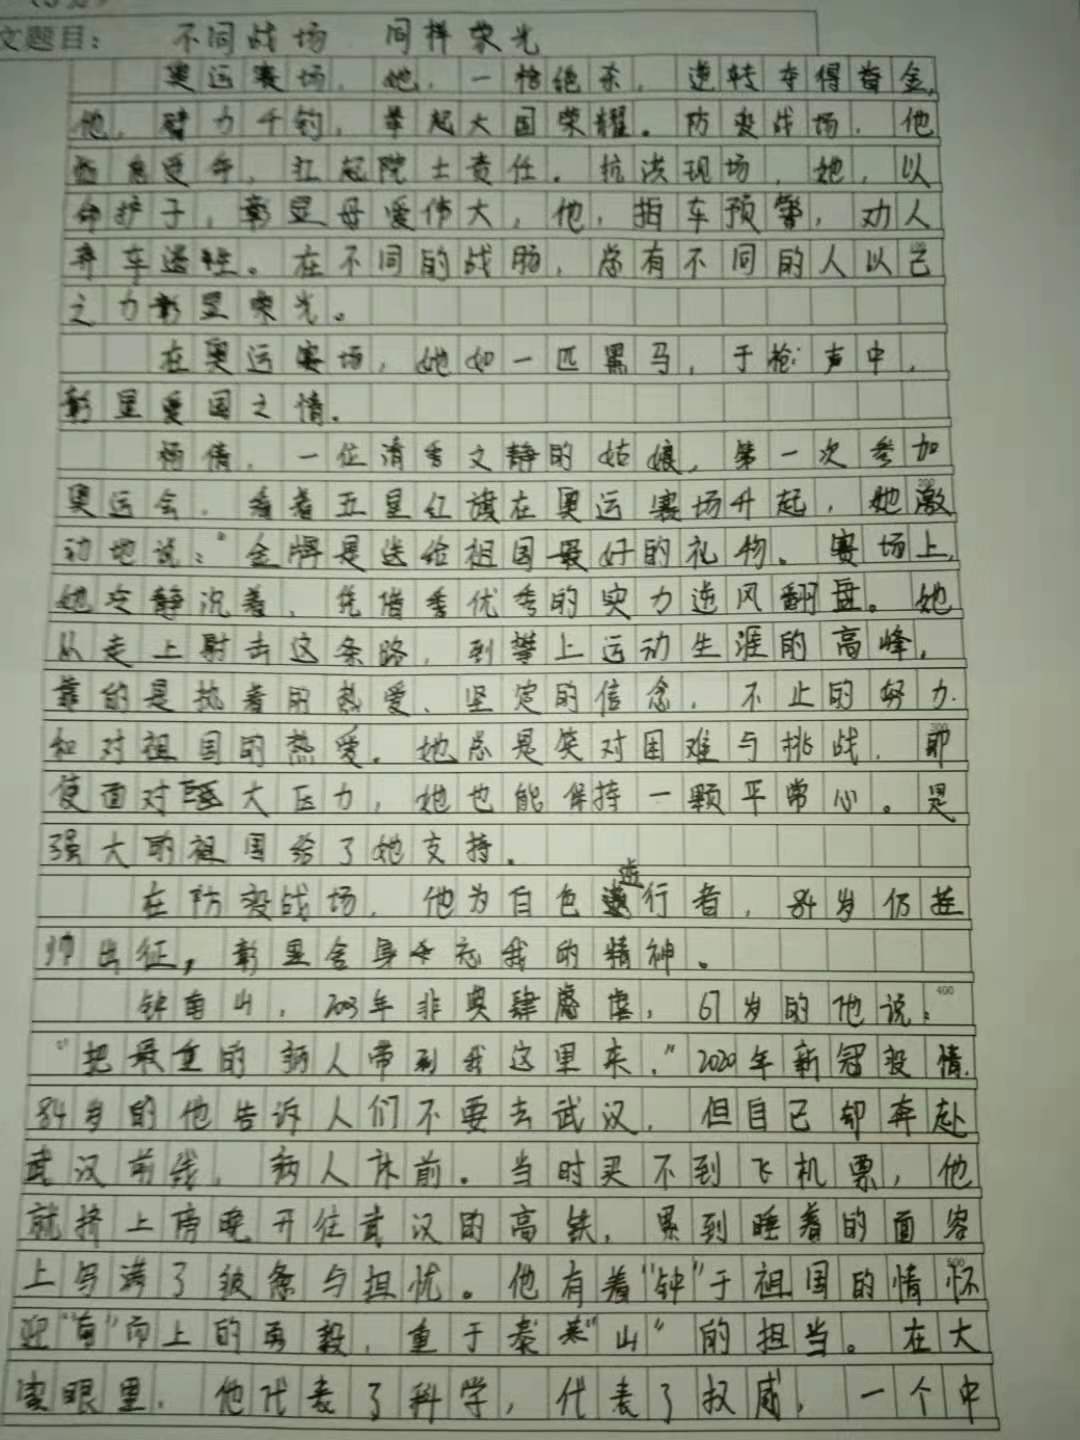 文题目： 不同战场 同样荣光
奥运赛场，她，一枪绝杀，逆转夺得首金，
他，臂力千钧，举起大国荣耀。防疫战场，他
受命，扛起院士责任。抗洪现场，她，以
命护子，彰显母爱伟大，他，拍车预警，劝人
弃车逃生。在不同的战场，总有不同的人以己
之力彰显荣光。
在奥运赛场，她如一匹黑马，于枪声中，
彰显爱国之情。
杨倩，一位清秀文静的姑娘，第一次参加
奥运会，看着五星红旗在奥运赛场升起，她激
动地说：“金牌是送给祖国最好的礼物。赛场上，
她冷静沉着，凭借优秀的实力逆风翻盘。她
从走上射击这条路，到攀上运动生涯的高峰，
靠的是执着的热爱、坚定的信念，不止的努力
和对祖国的热爱。她总是笑对困难与挑战，即
使面对巨大压力，她也能保持一颗平常心。是
强大的祖国给了她支持。
在防疫战场，他为白色逆行者，84岁仍挂
帅出征，彰显舍身忘我的精神。
钟南山，2003年非典肆虐，67岁的他说：
“把最重的病人带到我这里来，”2020年新冠疫情
84岁的他告诉人们不要去武汉，但自己却奔赴
武汉前线，病人床前。当时买不到飞机票，他
就挤上傍晚开往武汉的高铁，累到睡着的面容
上写满了疲惫与担忧。他有着“钟”于祖国的情怀
迎“南”而上的勇毅，重于泰“山”的担当。在大
家眼里，他代表了科学，代表了权威，一个中